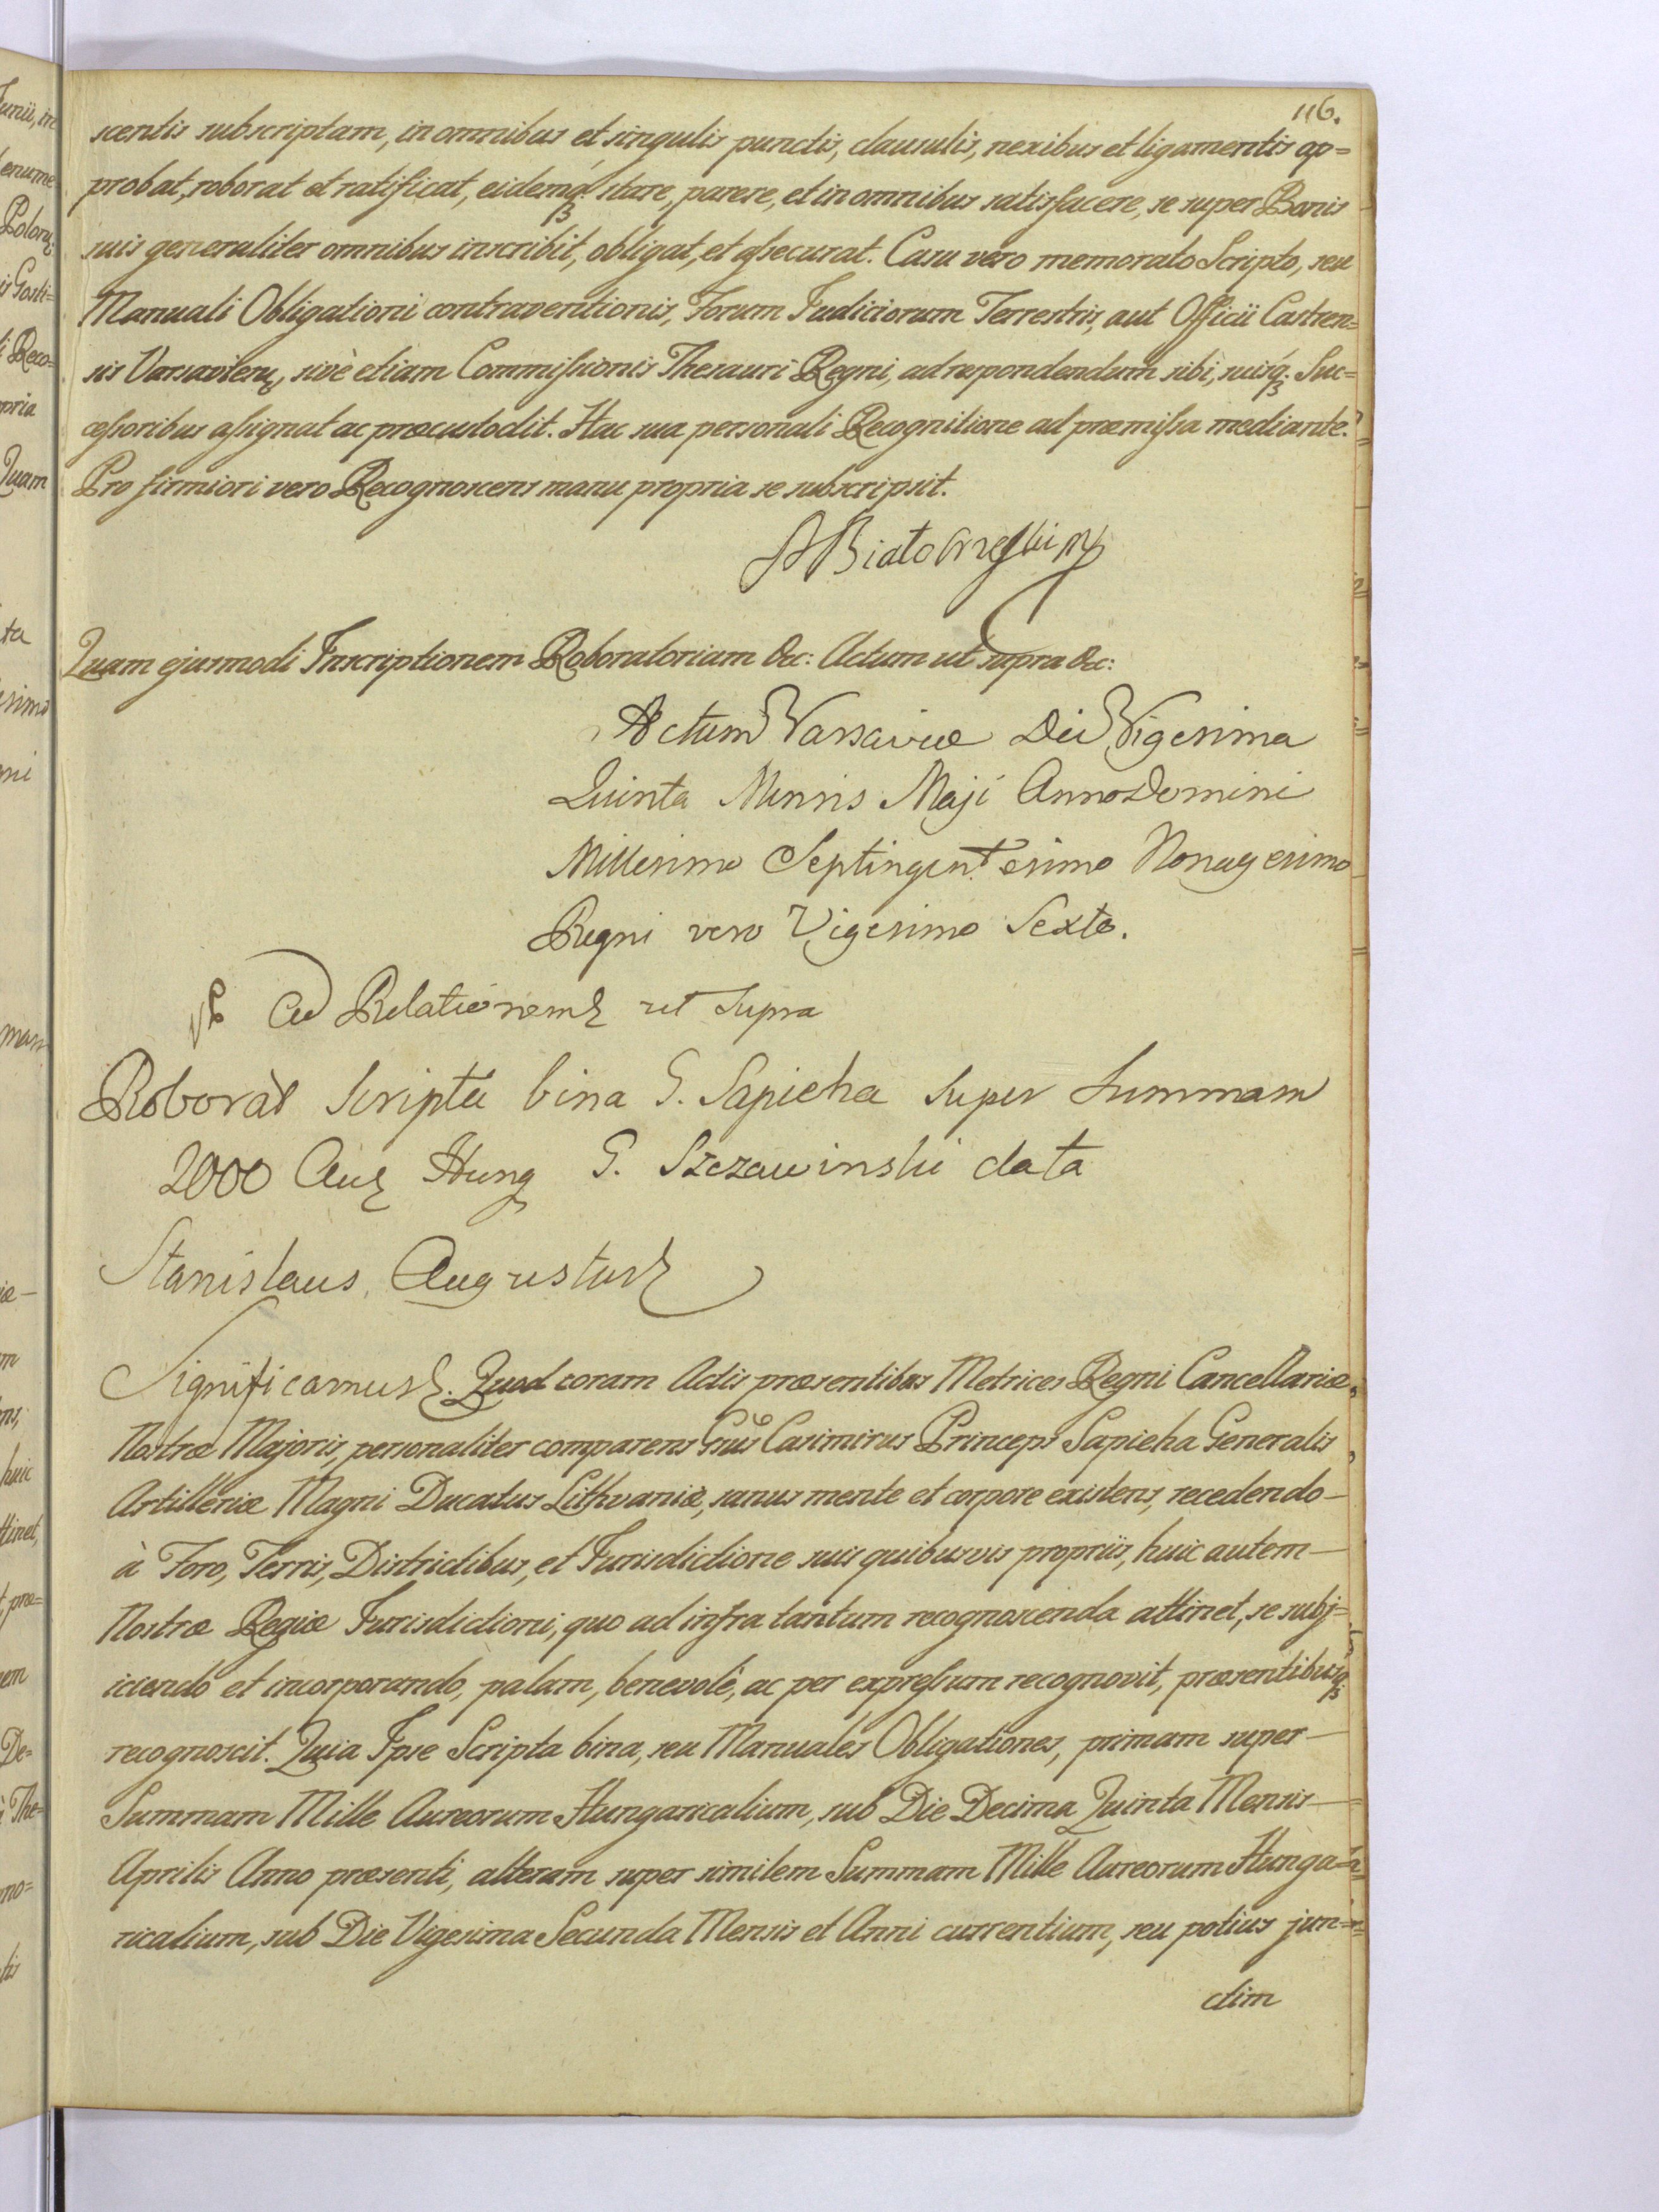 116.
scentis subscriptam, in omnibus et singulis punctis, clausulis, nexibus et ligamentis ap=
probat, roborat et ratificat, eidemq3 stare, parere, et in omnibus satisfacere, se super Bonis
suis generaliter omnibus inscribit, obligat, et assecurat. Casu vero memorato Scripto, seu
Manuali Obligationi contraventionis, Forum Judiciorum Terrestris, aut Officii Castren=
sis Varsavien, sivè etiam Commissionis Thesauri Regni, ad respondendum sibi, suisq3 Suc=
cessoribus assignat ac præcustodit. Hac sua personali Recognitione ad præmissa mediante.
Pro firmiori vero Recognoscens manu propria se subscripsit.
Quam ejusmodi Inscriptionem Roboratoriam &c: Actum ut supra &c:
Actum Varsaviæ Die Vigesima
Quinta Mensis Maji Anno Domini
Millesimo Septingentesimo Nonagesimo
Regni vero Vigesimo Sexto.
Ad Relationem ut Supra
Roborat Scripta bina G. Sapieha Super Summam
2000 Au Hung G. Szczawinski data
Stanislaus Augustus
Significamus. Quod coram Actis præsentibus Metrices Regni Cancellariæ
Nostræ Majoris, personaliter comparens Gnus Casimirus Princeps Sapieha Generalis
Artilleriæ Magni Ducatus Lithvaniæ, sanus mente et corpore existens, recedendo
à Foro, Terris, Districtibus, et Jurisdictione suis quibusvis propriis, huic autem
Nostræ Regiæ Jurisdictioni, quo ad infra tantum recognoscenda attinet, se subj=
iciendo et incorporando, palam, benevolè, ac per expressum recognovit, præsentibusq3
recognoscit. Quia Ipse Scripta bina, seu Manuales Obligationes, primam super
Summam Mille Aureorum Hungaricalium, sub Die Decima Quinta Mensis
Aprilis Anno præsenti, alteram super similem Summam Mille Aureorum Hunga=
ricalium, sub Die Vigesima Secunda Mensis et Anni currentium, seu potius jun=
ctim